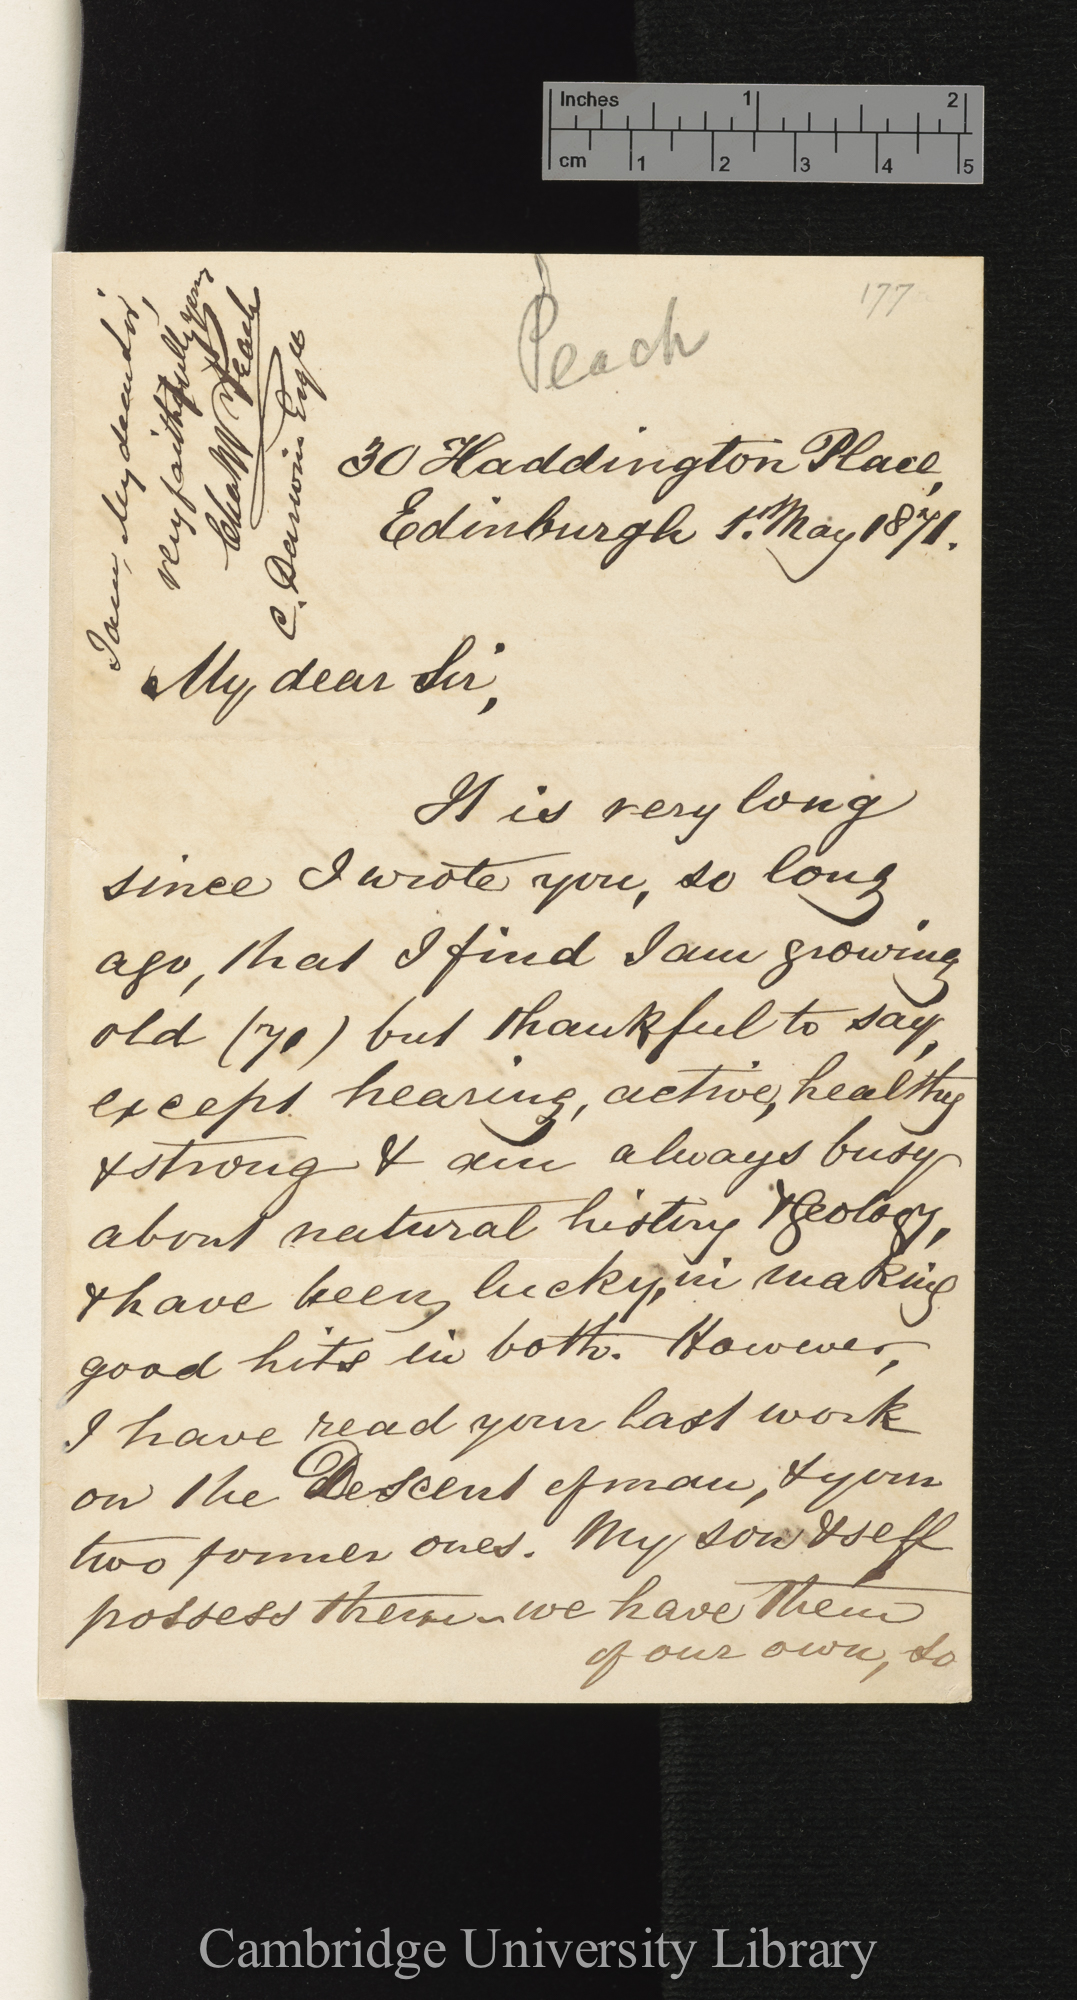 Inches 1 2
cm 1 2 3 4 5
177
Peach
30 Haddington Place,
Edinburgh 1st. May 1871.
My dear Sir,
It is very long
since I wrote you, so long
ago, that I find I am growing
old (70) but thankful to say,
except hearing, active, healthy
& strong & am always busy
about natural history & Geology,
& have been, lucky, in making
good hits in both. However,
I have read your last work
on the Descent of man, & your
two former ones. My son & self
possess them – we have them
of our own, so
I am, my dear Sir,
very faithfully yours
Chas W Peach
C. Darwin Esqre
Cambridge University Library